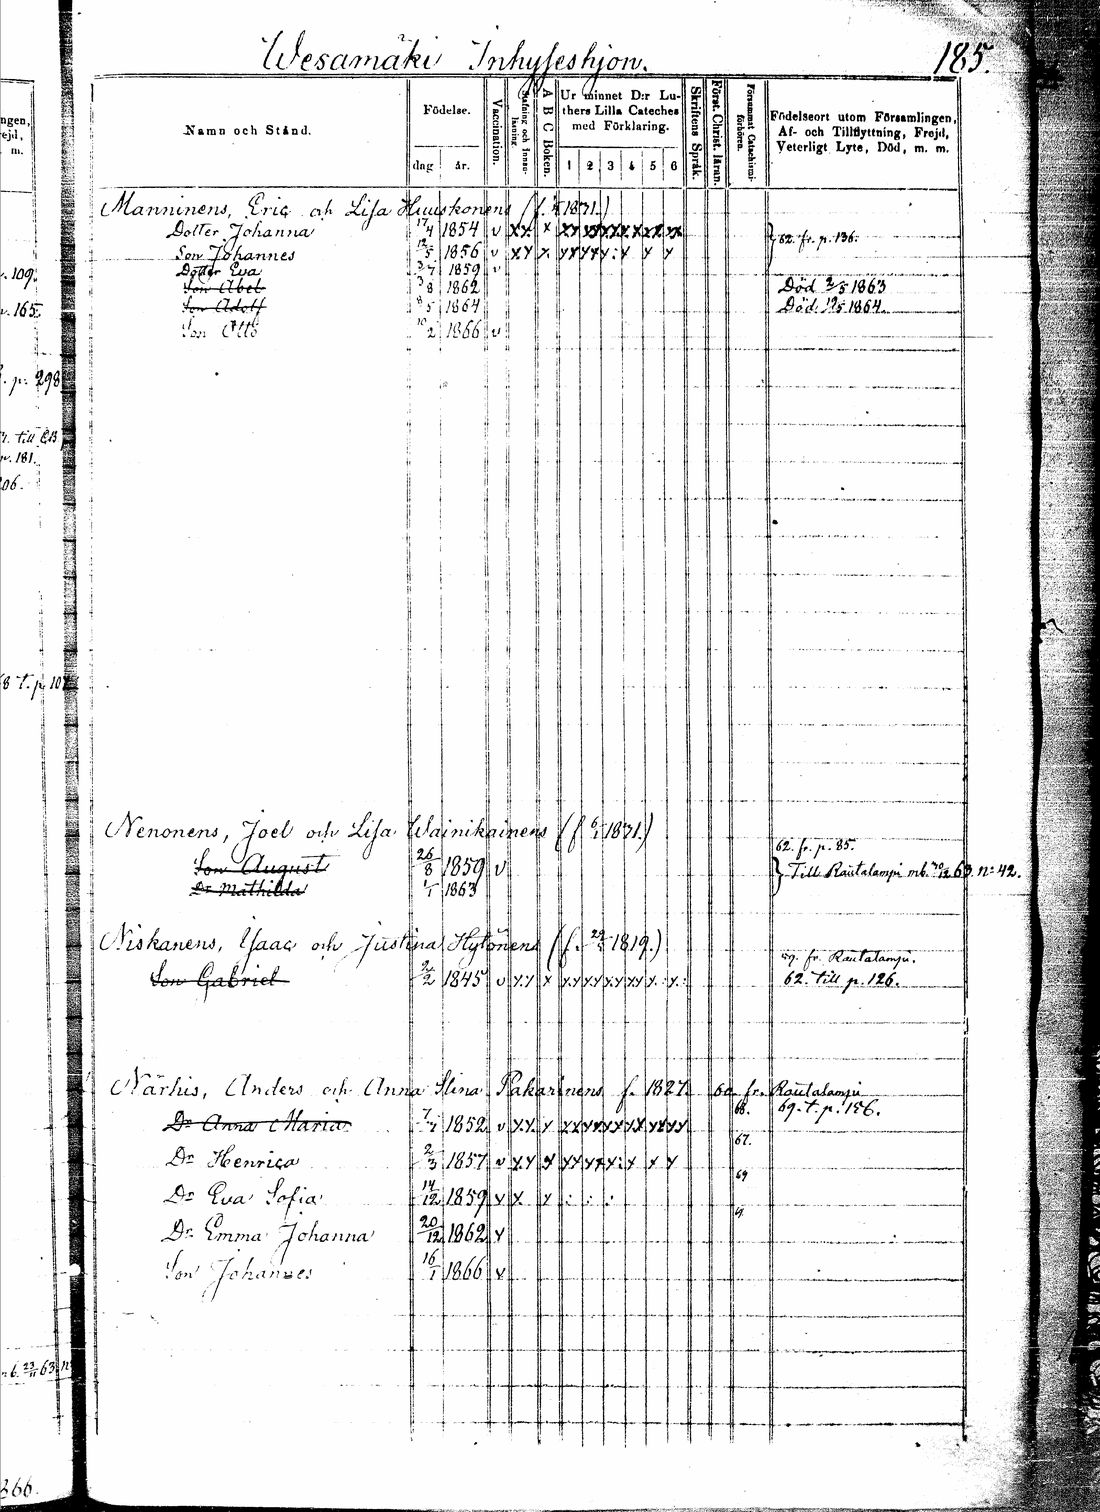 Wesamäki Inhyseshjon.
185.
Namn och Stånd.
Födelse.
dag
år.
Vaccination.
A B C Boken.
Ur minnet D:r Lu-
thers Lilla Cateches
med Förklaring.
1 2 3 4 5 6
Skriftens Språk.
Först. Christ. läran.
Försummat Catechismi-
förhören.
Födelseort utom Församlingen,
Af- och Tillflyttning, Frejd,
Veterligt Lyte, Död, m. m.
Manninens, Eric och Lisa Huuskonens (f. 1831.)
Dotter Johanna 17/4 1854 v x x x x x x x x x x x x x x x 62. fr. p. 136.
Son Johannes 12/5 1856 v x y x
Dotter Eva 1859 v
Son Abel 3/8 1862 Död 2/5 1863
Son Adolf 8/5 1864 Död 19/5 1864.
Son Otto 10/2 1866 v
Nenonens, Joel och Lisa Wainikainens (f. 6/1 1831.)
62. fr. p. 85.
Son August 26/8 1859 v Till Rautalampi mb. 63. no 42.
Dr Mathilda 1/1 1863
Niskanens, Isaac och Justina Hytönens (f. 1819.)
59. fr. Rautalampi.
Son Gabriel 1845 v y y x 62. till p. 126.
Närhis, Anders och Anna Stina Pakarinens f. 1827. 60 fr. Rautalampi
68. 69. t. p. 156.
Dr Anna Maria 1852 v y y y
67.
Dr Henrica 2/3 1857 v y y y
69
Dr Eva Sofia 14/12 1859 v x x
Dr Emma Johanna 20/12 1862 v
Son Johannes 16/1 1866 v
ngen,
m.
109.
165.
p. 298
till
p. 181.
06.
8 t. p. 10
63. n
366.